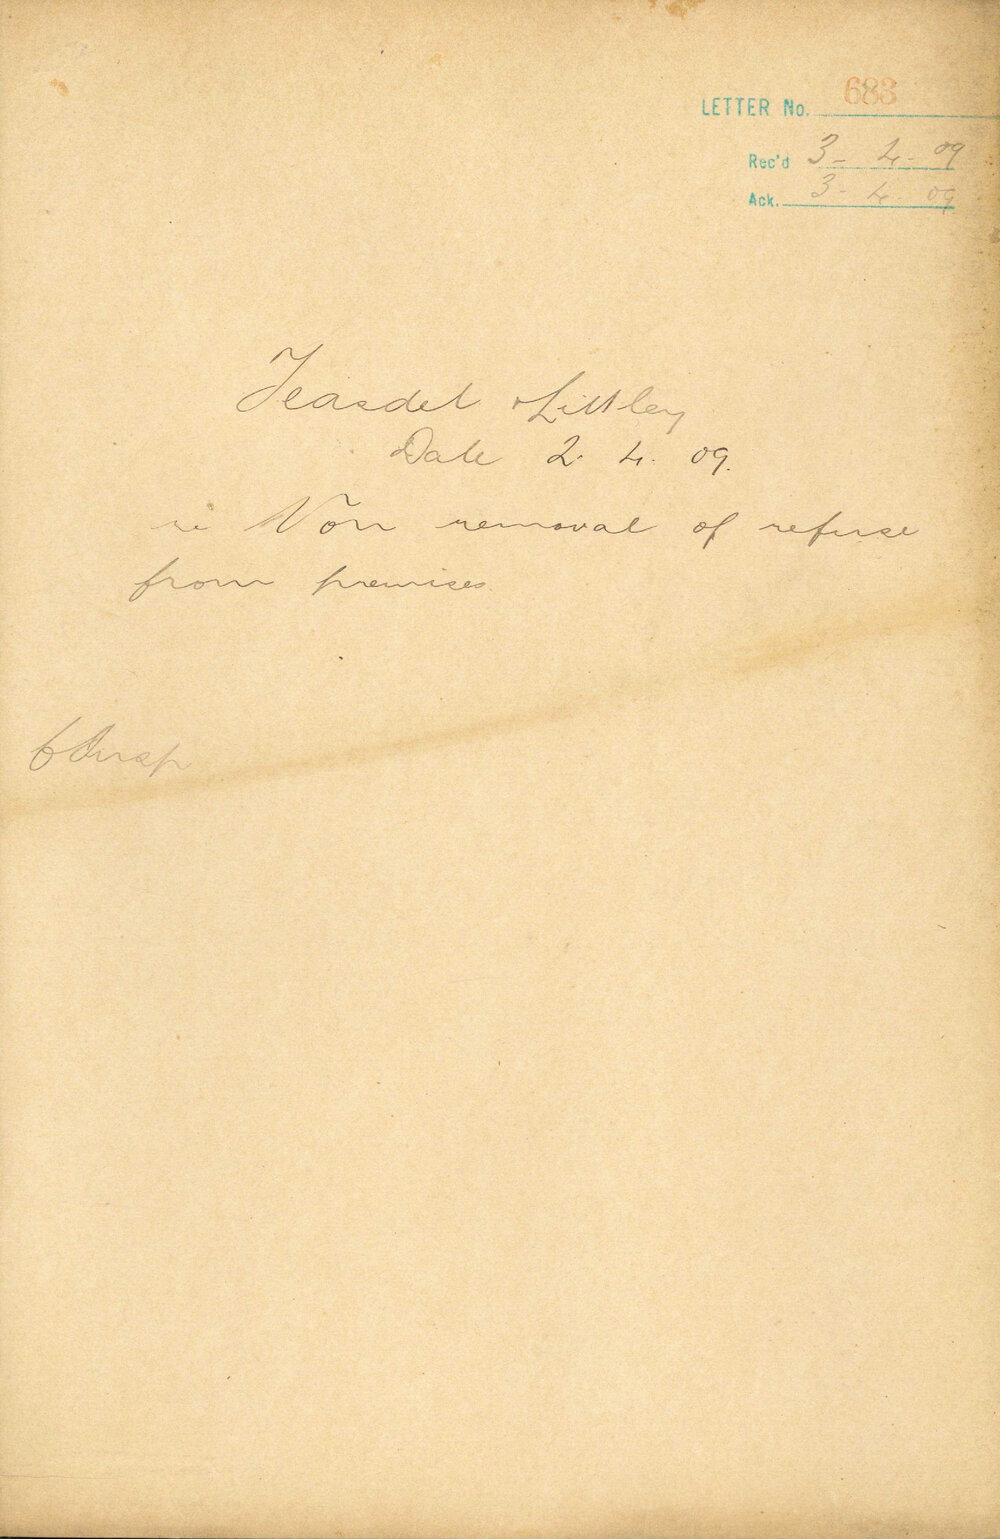 LETTER No. 683
Rec'd 3-4-09
Ack. 3-4-09
Teasdel & Littley
Date 2.4.09.
re Non removal of refuse
from premises.
Insp